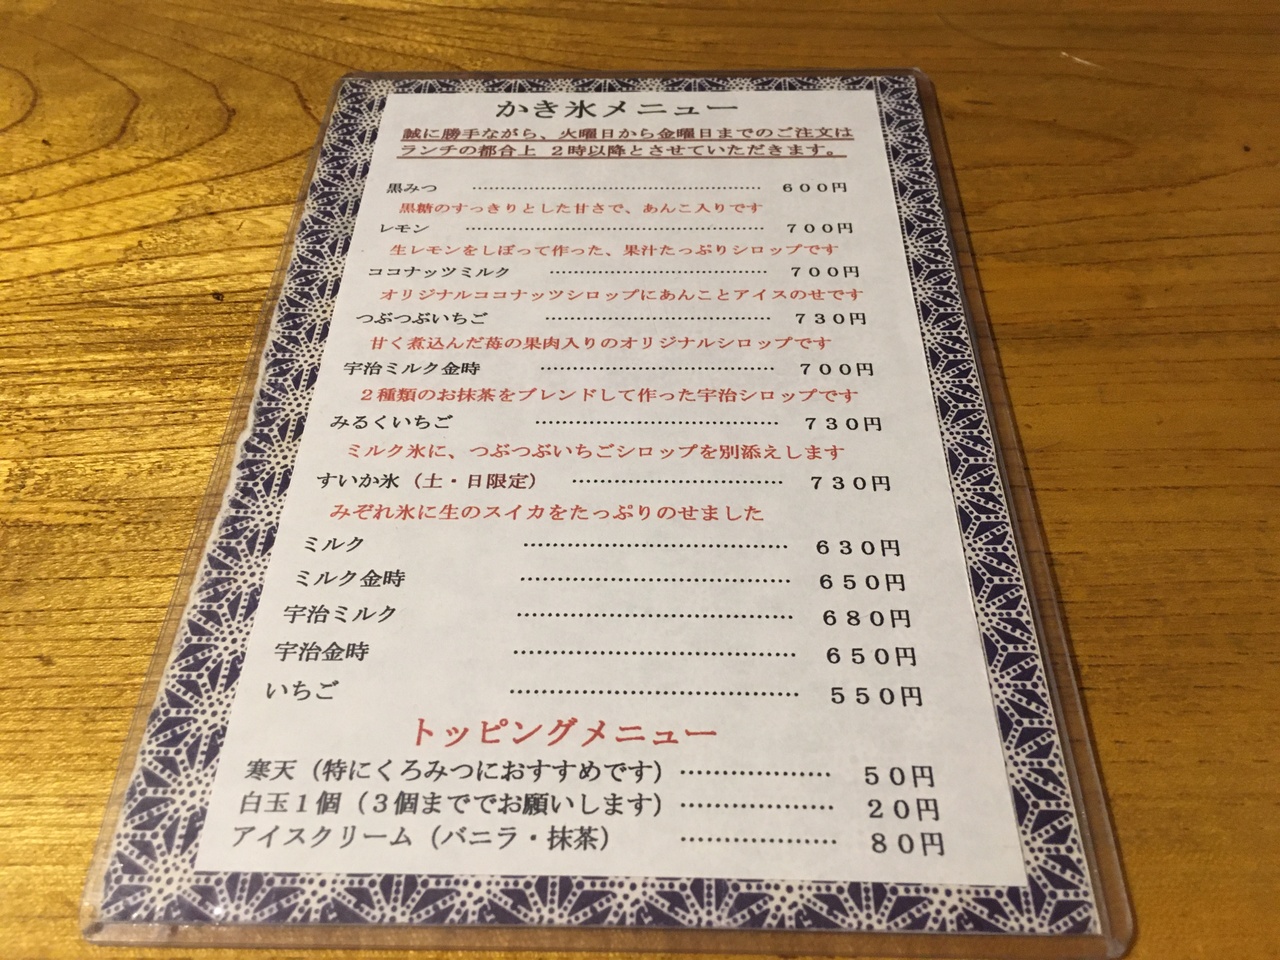 かき氷メニュー
誠に勝手ながら、火曜日から金曜日までのご注文は
ランチの都合上 ２時以降とさせていただきます。
黒みつ ………………………………… ６００円
黒糖のすっきりとした甘さで、あんこ入りです
レモン ………………………………… ７００円
生レモンをしぼって作った、果汁たっぷりシロップです
ココナッツミルク ………………………… ７００円
オリジナルココナッツシロップにあんことアイスのせです
つぶつぶいちご ………………………… ７３０円
甘く煮込んだ苺の果肉入りのオリジナルシロップです
宇治ミルク金時 ………………………… ７００円
２種類のお抹茶をブレンドして作った宇治シロップです
みるくいちご ………………………… ７３０円
ミルク氷に、つぶつぶいちごシロップを別添えします
すいか氷（土・日限定） ……………………… ７３０円
みぞれ氷に生のスイカをたっぷりのせました
ミルク ………………………… ６３０円
ミルク金時 ………………………… ６５０円
宇治ミルク ………………………… ６８０円
宇治金時 ………………………… ６５０円
いちご ………………………… ５５０円
トッピングメニュー
寒天（特にくろみつにおすすめです）……………… ５０円
白玉１個（３個まででお願いします）……………… ２０円
アイスクリーム（バニラ・抹茶） ……………… ８０円